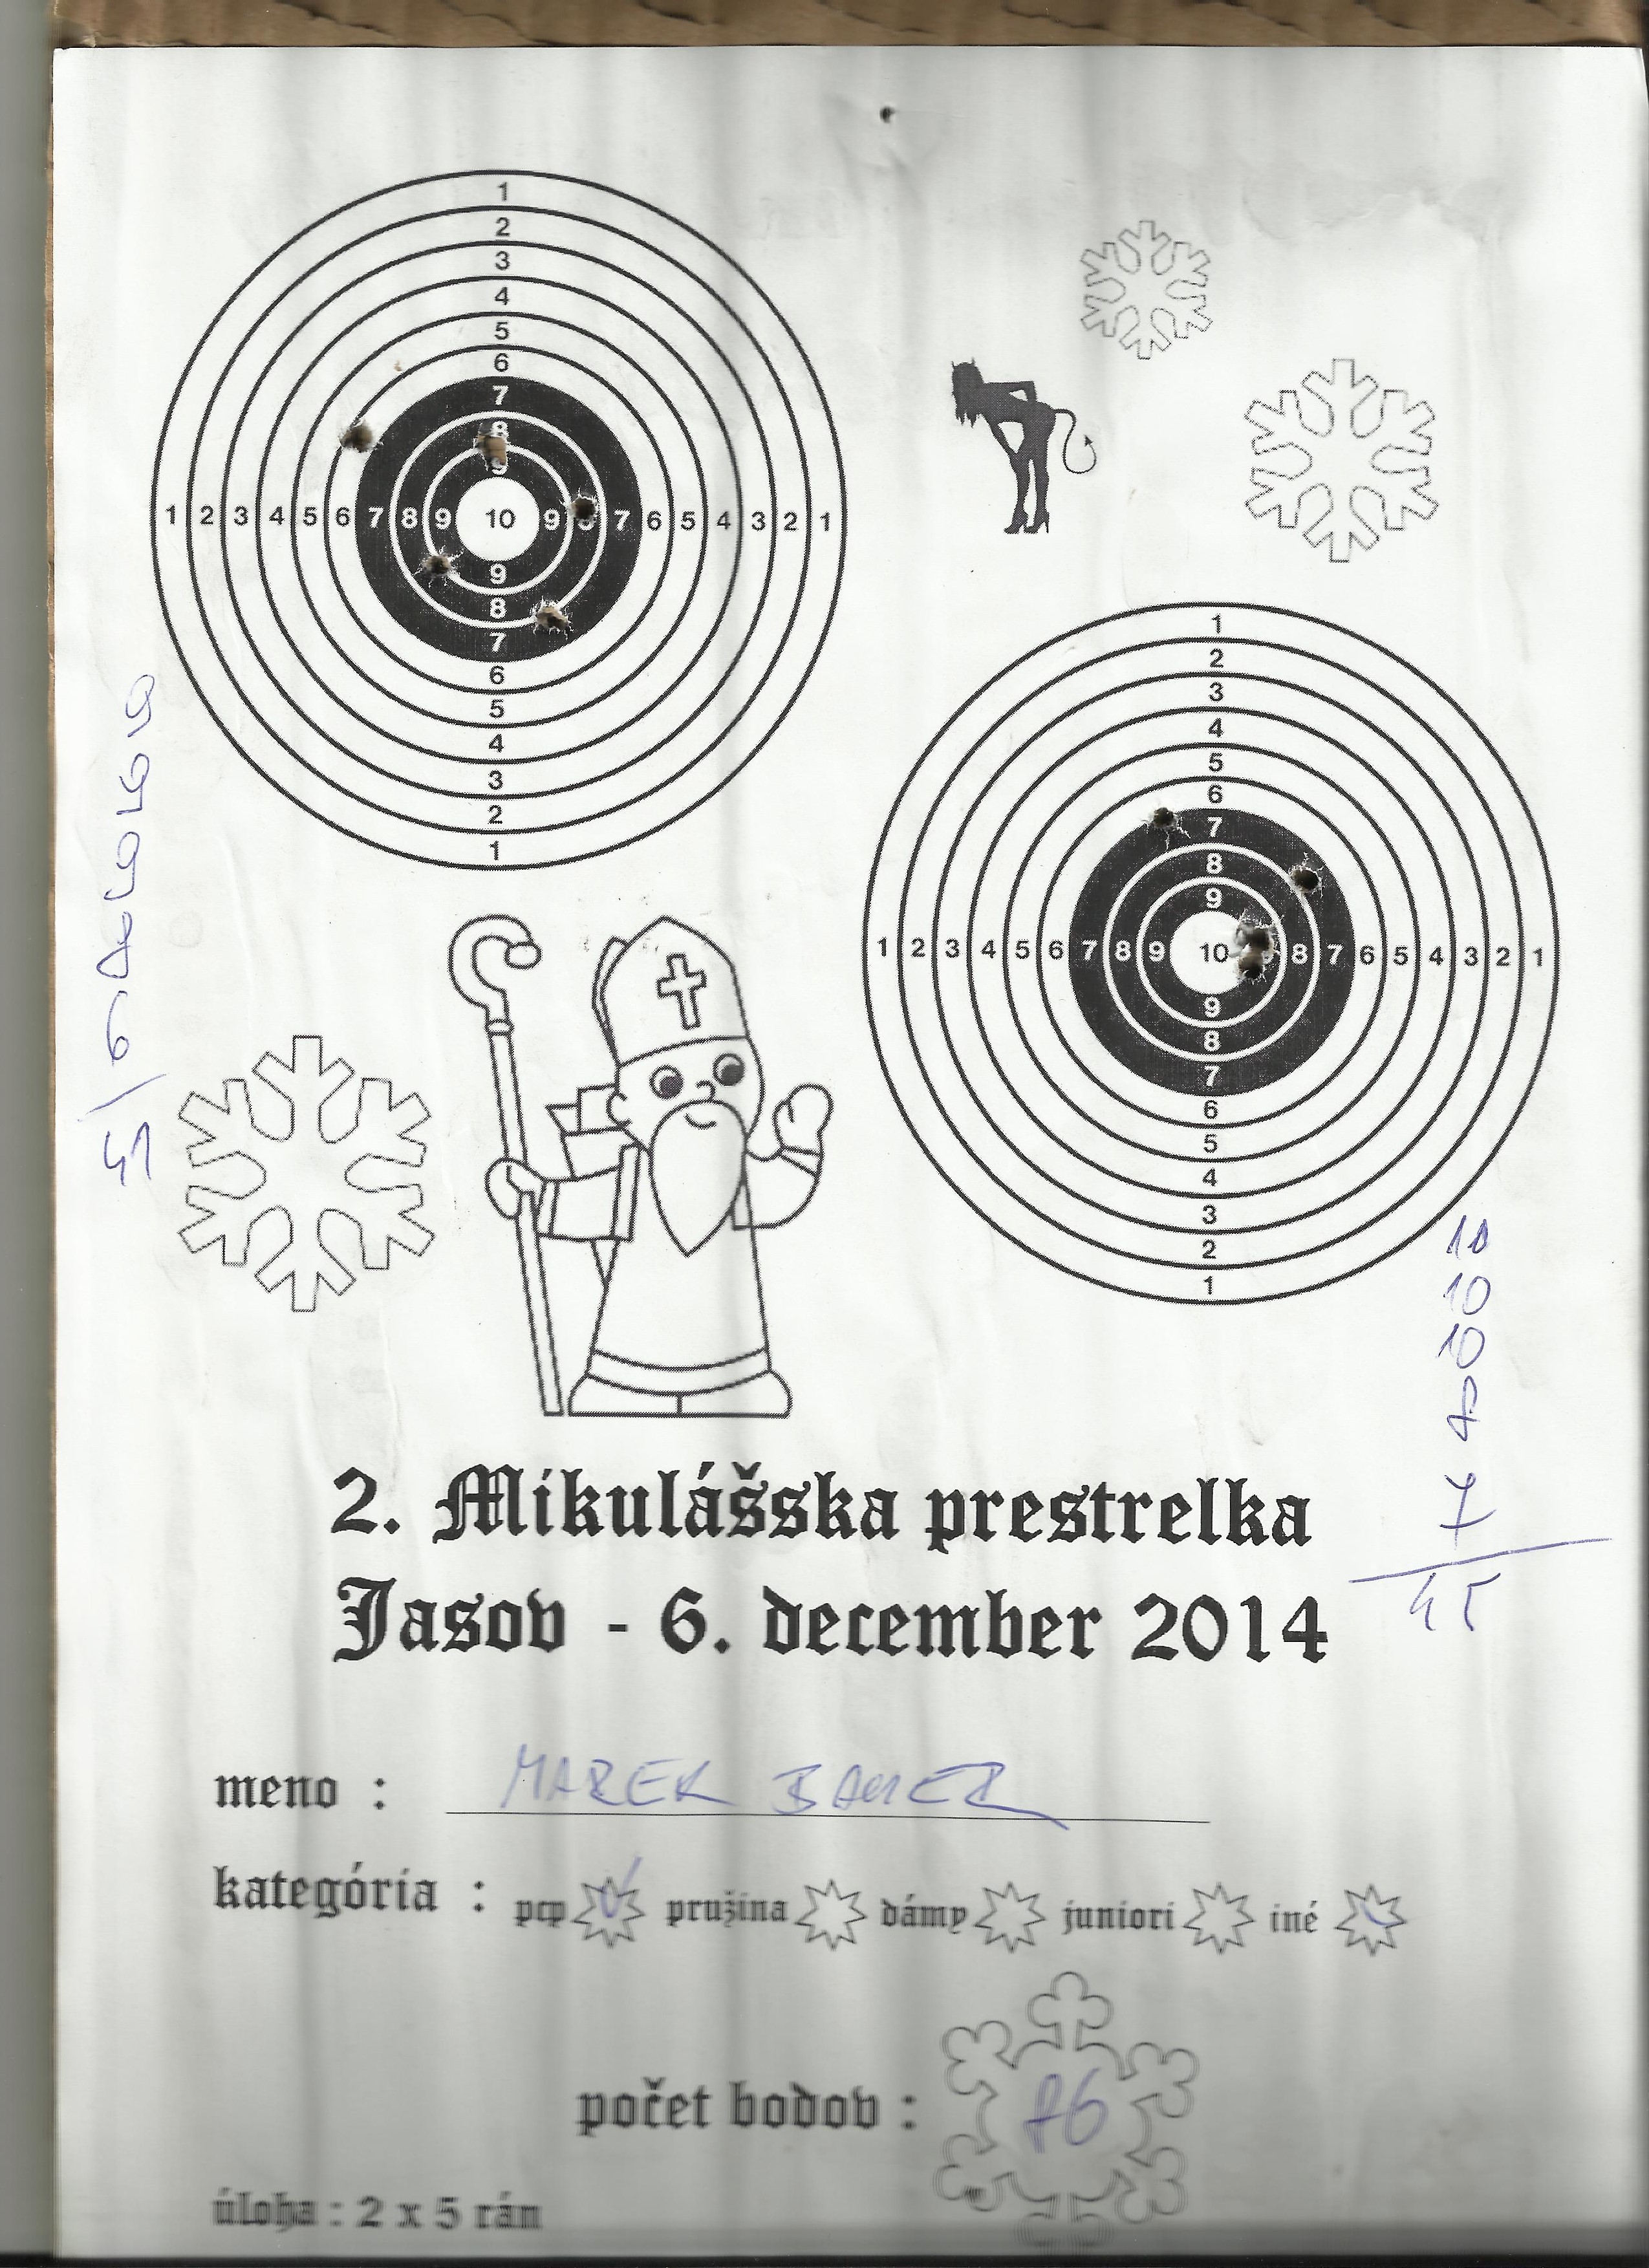 1
2
3
4
5
6
7
8
9
1 2 3 4 5 6 7 8 9 10 9 8 7 6 5 4 3 2 1
9
8
7
6
5
4
3
2
1
1
2
3
4
5
6
7
8
9
1 2 3 4 5 6 7 8 9 10 8 7 6 5 4 3 2 1
9
8
7
6
5
4
3
2
1
41
10
10
10
8
7
45
2. Mikulášska prestrelka
Jasov - 6. december 2014
meno : MAREK BAUER
kategória : pcp pružina dámy juniori iné
počet bodov : 86
úloha : 2 x 5 rán